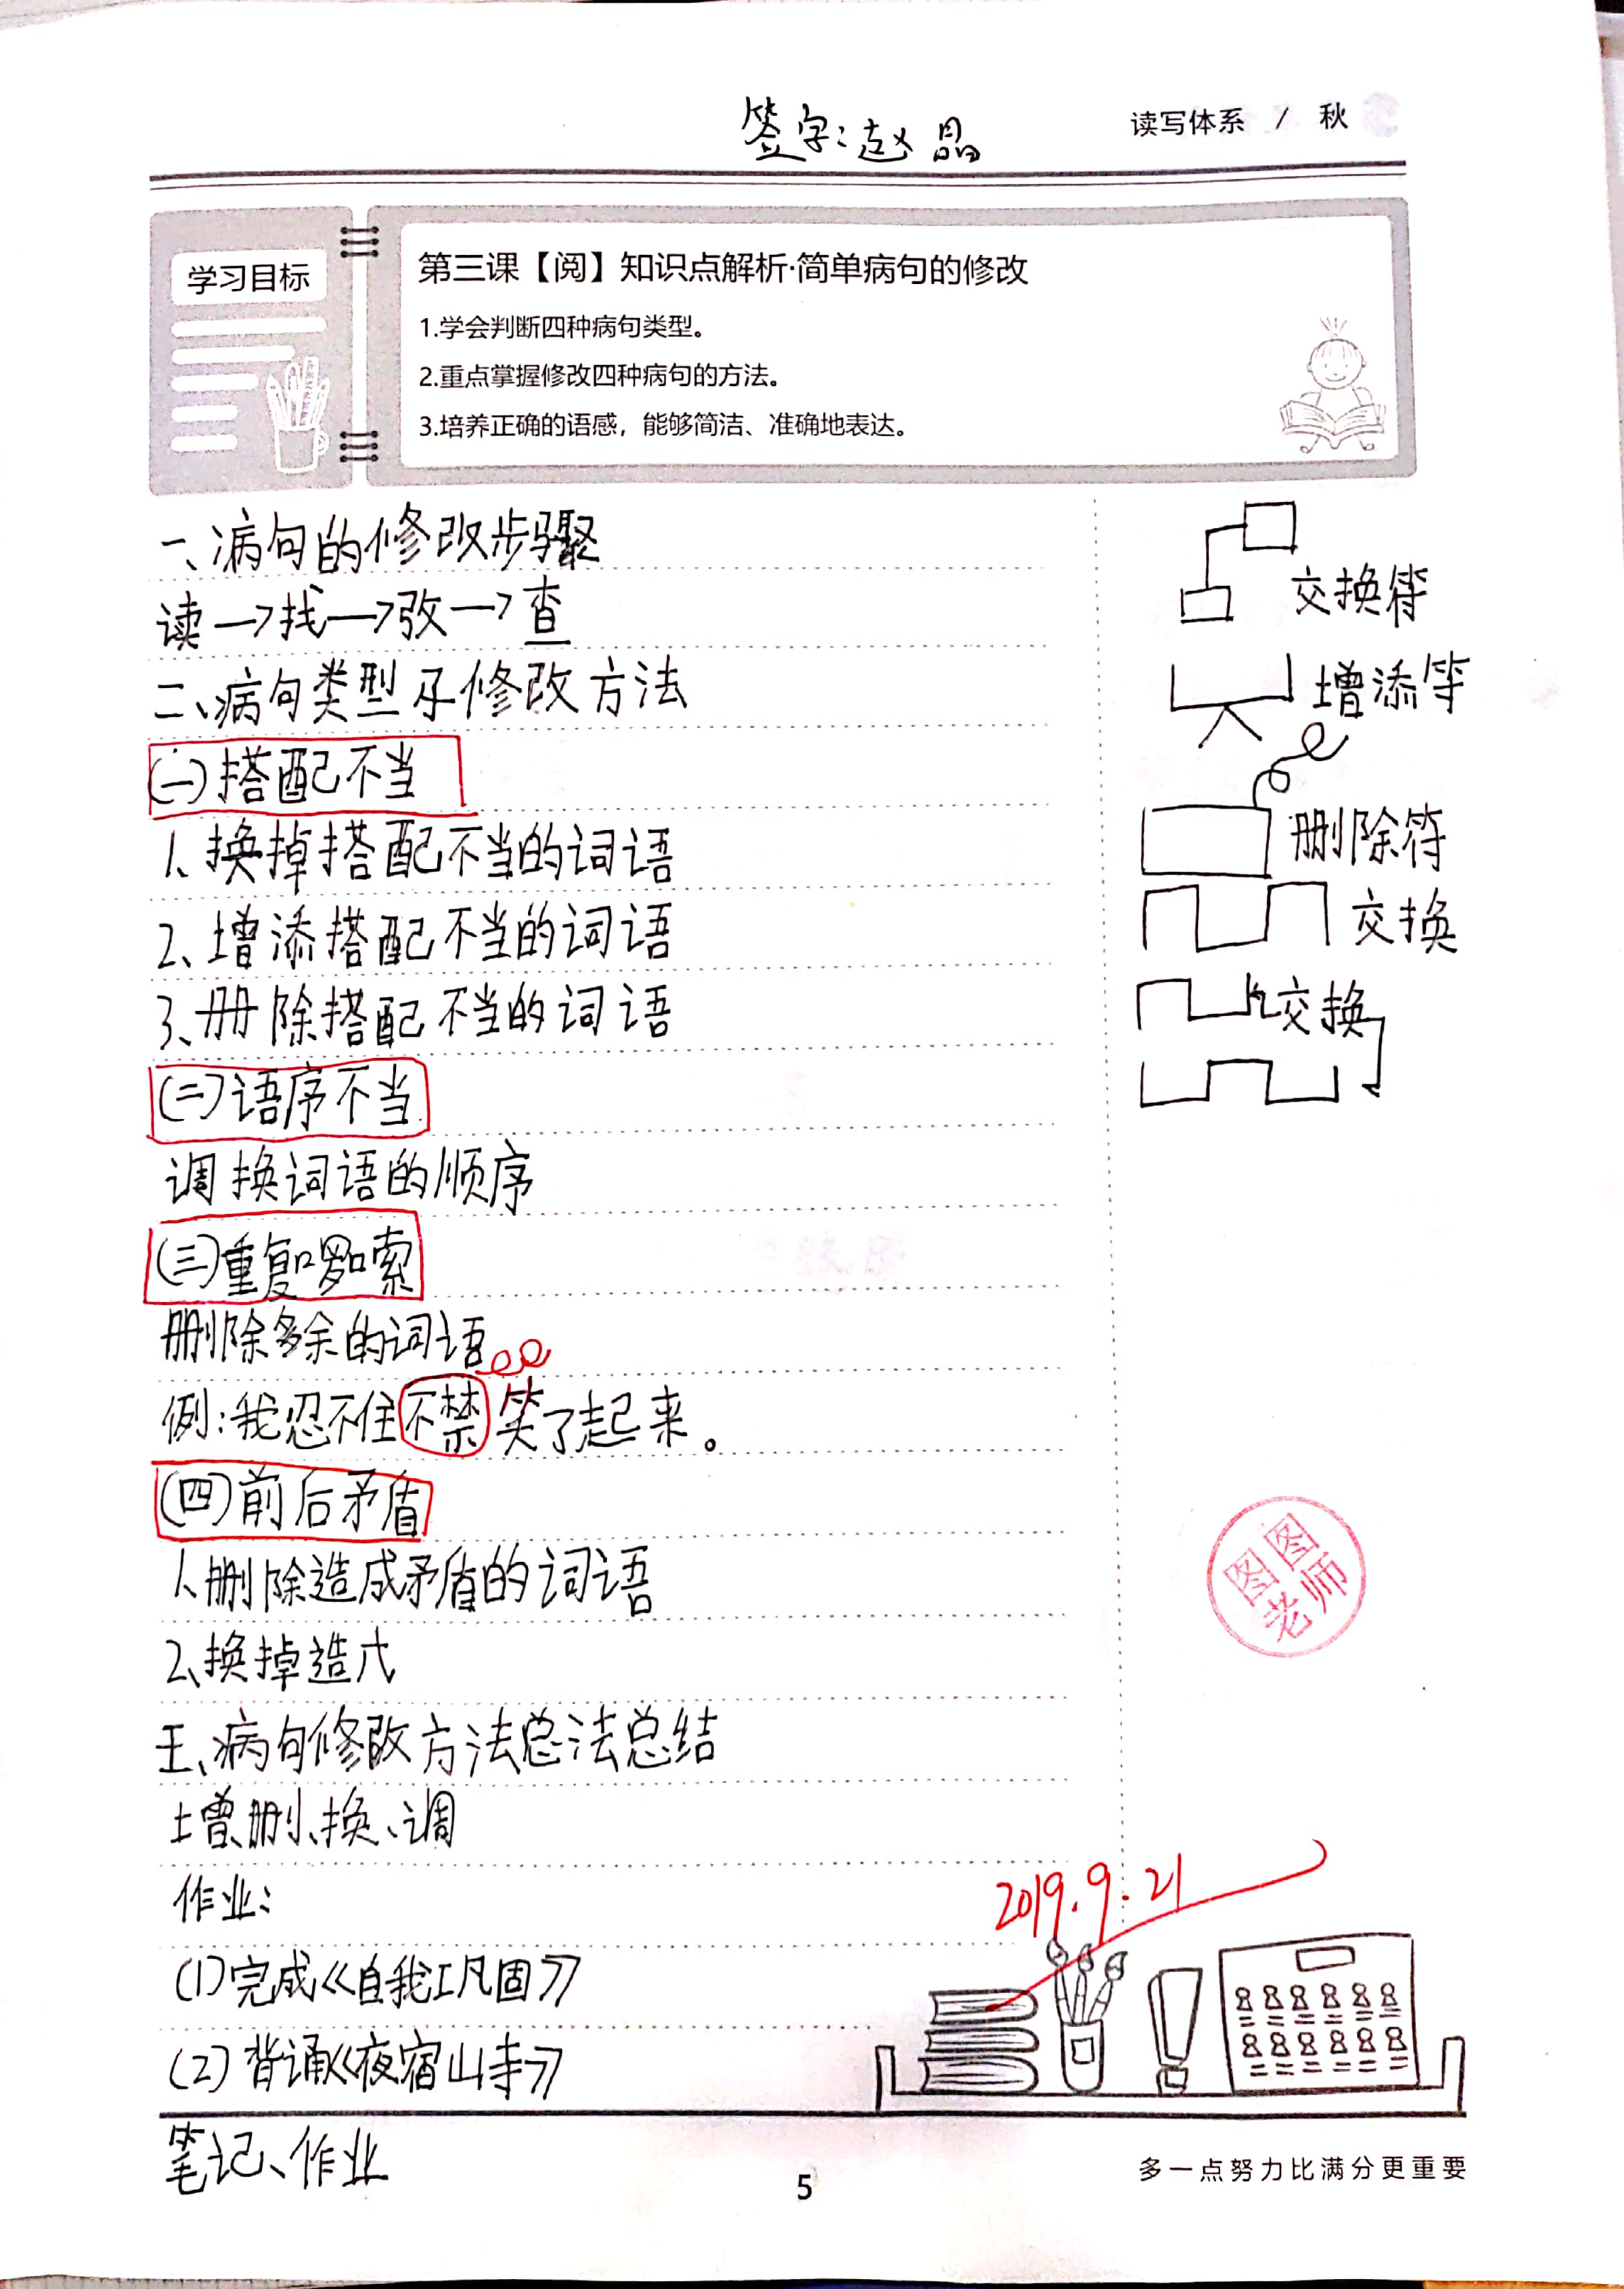 签字：赵晶
读写体系 / 秋
学习目标
第三课【阅】知识点解析·简单病句的修改
1.学会判断四种病句类型。
2.重点掌握修改四种病句的方法。
3.培养正确的语感，能够简洁、准确地表达。
一、病句的修改步骤
读→找→改→查
二、病句类型及修改方法
(一)搭配不当
1、换掉搭配不当的词语
2、增添搭配不当的词语
3、删除搭配不当的词语
(二)语序不当
调换词语的顺序
(三)重复啰索
删除多余的词语
例：我忍不住不禁笑了起来。
(四)前后矛盾
1、删除造成矛盾的词语
2、换掉造
三、病句修改方法总法总结
增、删、换、调
作业：
(1)完成《自我巩固》
(2)背诵《夜宿山寺》
笔记、作业
交换符
增添符
删除符
交换
交换
图图老师
2019.9.21
5
多一点努力比满分更重要